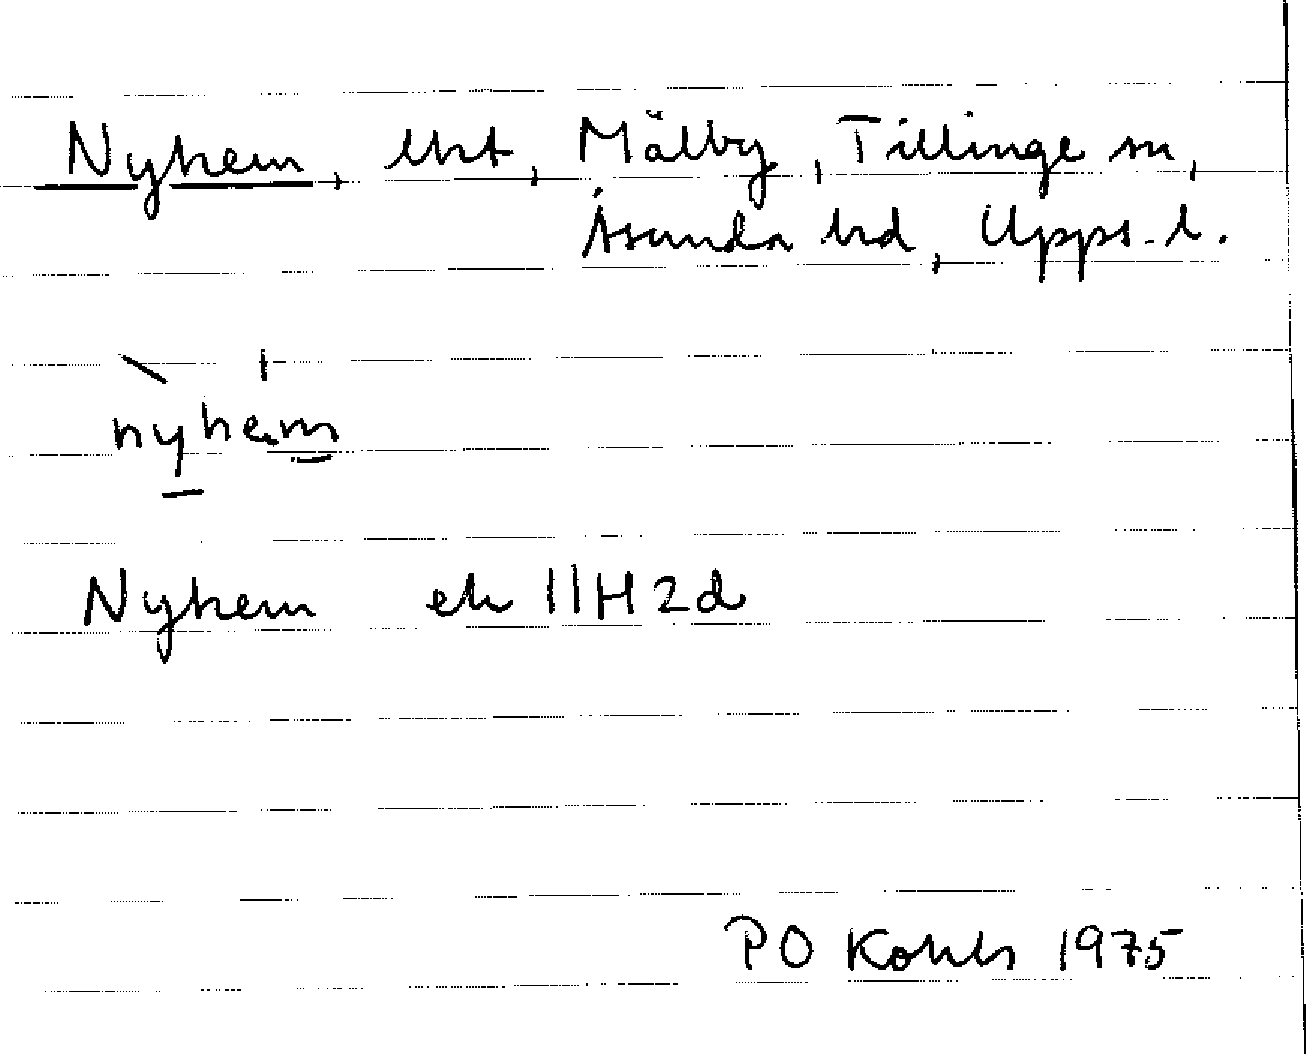 Nyhem, lht, Mälby, Tillinge sn,
Åsunda hd, Upps. l.
nyhem
Nyhem ek 11H2d
PO Kohls 1975